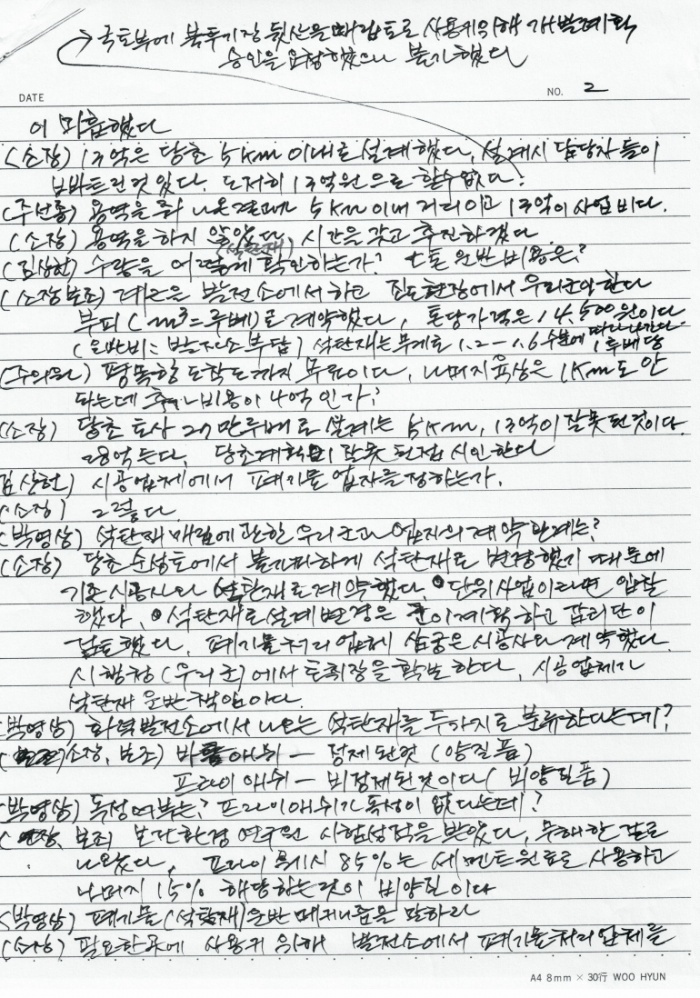 → 국토부에 북후기장 뒷산을 매립토로 사용키위해 개발계획
승인을 요청했으나 불가했다
DATE NO. 2
이 미흡했다
(소장) 13억은 당초 5km 이내로 설계했다. 설계시 담당자들이
빠트린것 있다. 도저히 13억원으로 할수없다.
(주선종) 용역을 줘 나온결과가 5km이내 거리이고 13억이 사업비다.
(소장) 용역을 하지 않았다. 시간을 갖고 추진하겠다.
(김상헌) 수량을 어떻게 (석탄재) 확인하는가? 톤 운반비용은?
(소장보조) 계근은 발전소에서 하고 진도현장에서 우리군이 한다
부피(m³=루베)로 계약했다, 톤당가격은 14,500원이다
(운반비는 발전소 부담) 석탄재는 무게로 1.2-1.6 수분에 따라 나간다. 1루베당
(주의원) 평목항 도착도까지 무료이다, 나머지 육상은 1km도 안
되는데 추가비용이 4억인가?
(소장) 당초 토사 27만루베로 설계는 5km, 13억이 잘못된것이다.
28억 든다, 당초계획이 잘못된점 시인한다
김상헌) 시공업체에서 폐기물 업자를 정하는가.
(소장) 그렇다
(박영상) 석탄재 매립에 관한 우리군과 업자의 계약관계는?
(소장) 당초 순성토에서 불가피하게 석탄재로 변경했기 때문에
기존시공사와 석탄재로 계약했다. 단위사업이라면 입찰
했다. 석탄재로 설계변경은 군이 계획하고 감리단이
검토했다, 폐기물처리업체 삼궁은 시공사와 계약했다.
시행청(우리군)에서 토취장을 확보한다, 시공업체가
석탄재 운반책임이다.
박영상) 화력발전소에서 나오는 석탄재를 두가지로 분류한다는데?
(소장, 보조) 바톰애쉬 - 정제된것 (양질품)
프라이애쉬 - 비정제된것이다 (비양질품)
박영상) 독성여부는? 프라이애쉬가 독성이 없다는데?
(소장, 보조) 보건환경 연구원 시험성적을 받았다, 무해한 걸로
나왔다, 프라이 무게시 85%는 세멘트원료로 사용하고
나머지 15% 해당하는것이 비양질이다
(박영상) 폐기물(석탄재)운반 매카니즘을 말하라
(소장) 필요한곳에 사용키 위해 발전소에서 폐기물처리업체를
A4 8mm × 30行 WOO HYUN